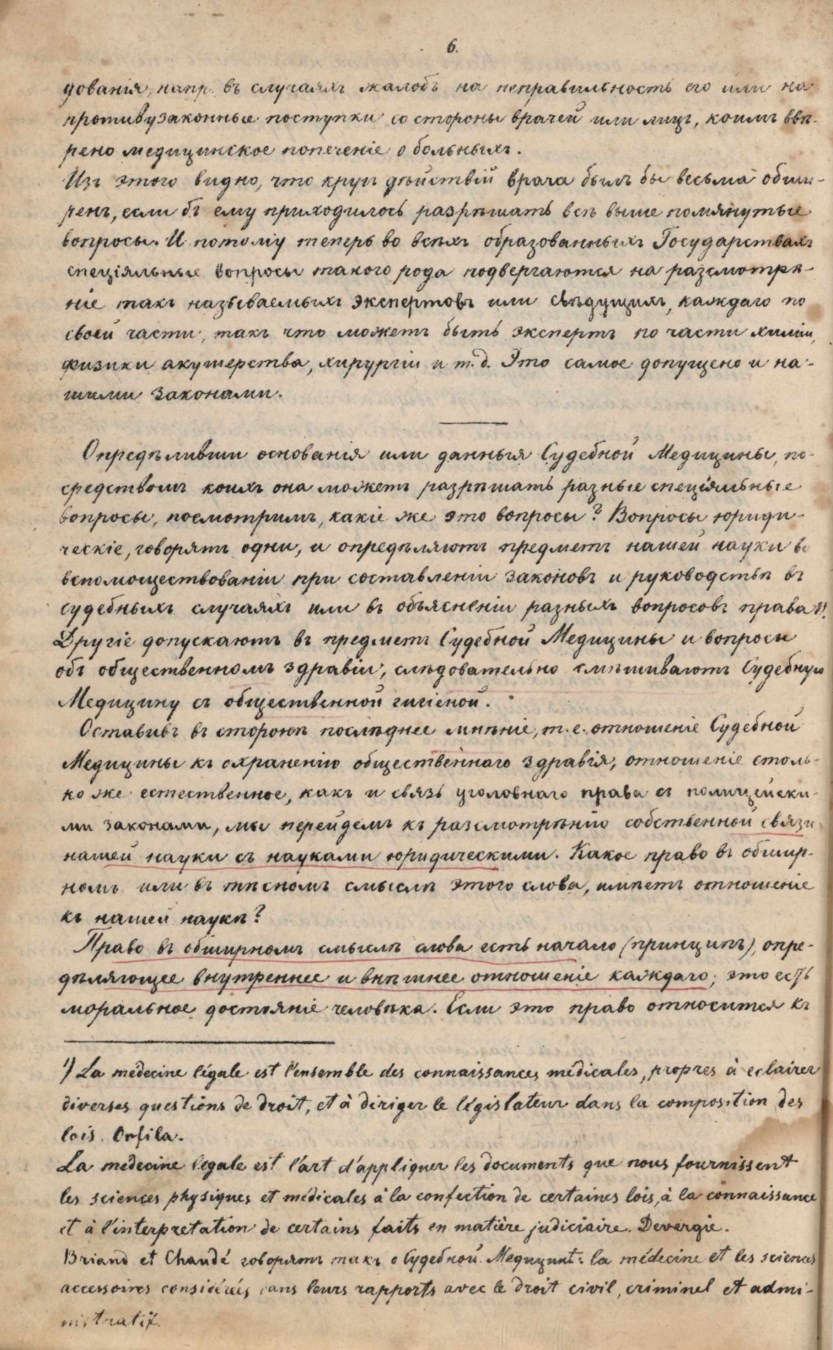 6.
дованія, напр. въ случаяхъ жалобъ на неправильность его или на
противузаконные поступки со стороны врачей или лицъ, коимъ ввѣ-
рено медицинское попеченіе о больныхъ.
Изъ этого видно, что кругъ дѣйствій врача былъ бы весьма обши-
ренъ, если бъ ему приходилось разрѣшать всѣ выше помянутые
вопросы. И потому теперь во всѣхъ образованныхъ Государствахъ
спеціяльные вопросы такого рода подвергаются на разсмотрѣ-
ніе такъ называемыхъ экспертовъ или свѣдущихъ, каждаго по
своей части, такъ что можетъ быть экспертъ по части химіи,
физики акушерства, хирургіи и т.д. Это самое допущено и на-
шими законами.
Опредѣливши основанія или данныя Судебной Медицины, по-
средствомъ коихъ она можетъ разрѣшать разные спеціяльные
вопросы, посмотримъ, какіе же это вопросы? Вопросы юриди-
ческіе, говорятъ одни, и опредѣляютъ предметъ нашей науки во
вспомоществованіи при составленіи законовъ и руководствѣ въ
судебныхъ случаяхъ или въ объясненіи разныхъ вопросовъ права ¹⁾.
Другіе допускаютъ въ предметъ Судебной Медицины и вопросы
объ общественномъ здравіи, слѣдовательно смѣшиваютъ Судебную
Медицину съ общественной гигіеной.
Оставивъ въ сторонѣ послѣднее мнѣніе, т.е. отношеніе Судебной
Медицины къ охраненію общественнаго здравія, отношеніе столь-
ко же естественное, какъ и связь уголовнаго права съ полицейски-
ми законами, мы перейдемъ къ разсмотрѣнію собственной связи
нашей науки съ науками юридическими. Какое право въ обшир-
номъ или въ тѣсномъ смыслѣ этого слова, имѣетъ отношеніе
къ нашей наукѣ?
Право въ обширномъ смыслѣ слова есть начало (принципъ), опре-
дѣляющее внутреннее и внѣшнее отношеніе каждаго, это есть
моральное достояніе человѣка. Если это право относится къ
¹⁾ La médecine légale est l'ensemble des connaissances médicales, propres à eclairer
diverses questions de droit, et à diriger le législateur dans la composition des
lois. Orfila.
La médecine légale est l'art d'appliquer les documents que nous fournissent
les sciences physiques et médicales à la confection de certaines lois, à la connaissance
et à l'interpretation de certains faits en matière judiciaire. Devergie.
Briand et Chaudé говорятъ такъ о Судебной Медицинѣ: la médecine et les sciences
accessoires considérés dans leurs rapports avec le droit civil, criminel et admi-
nistratif.